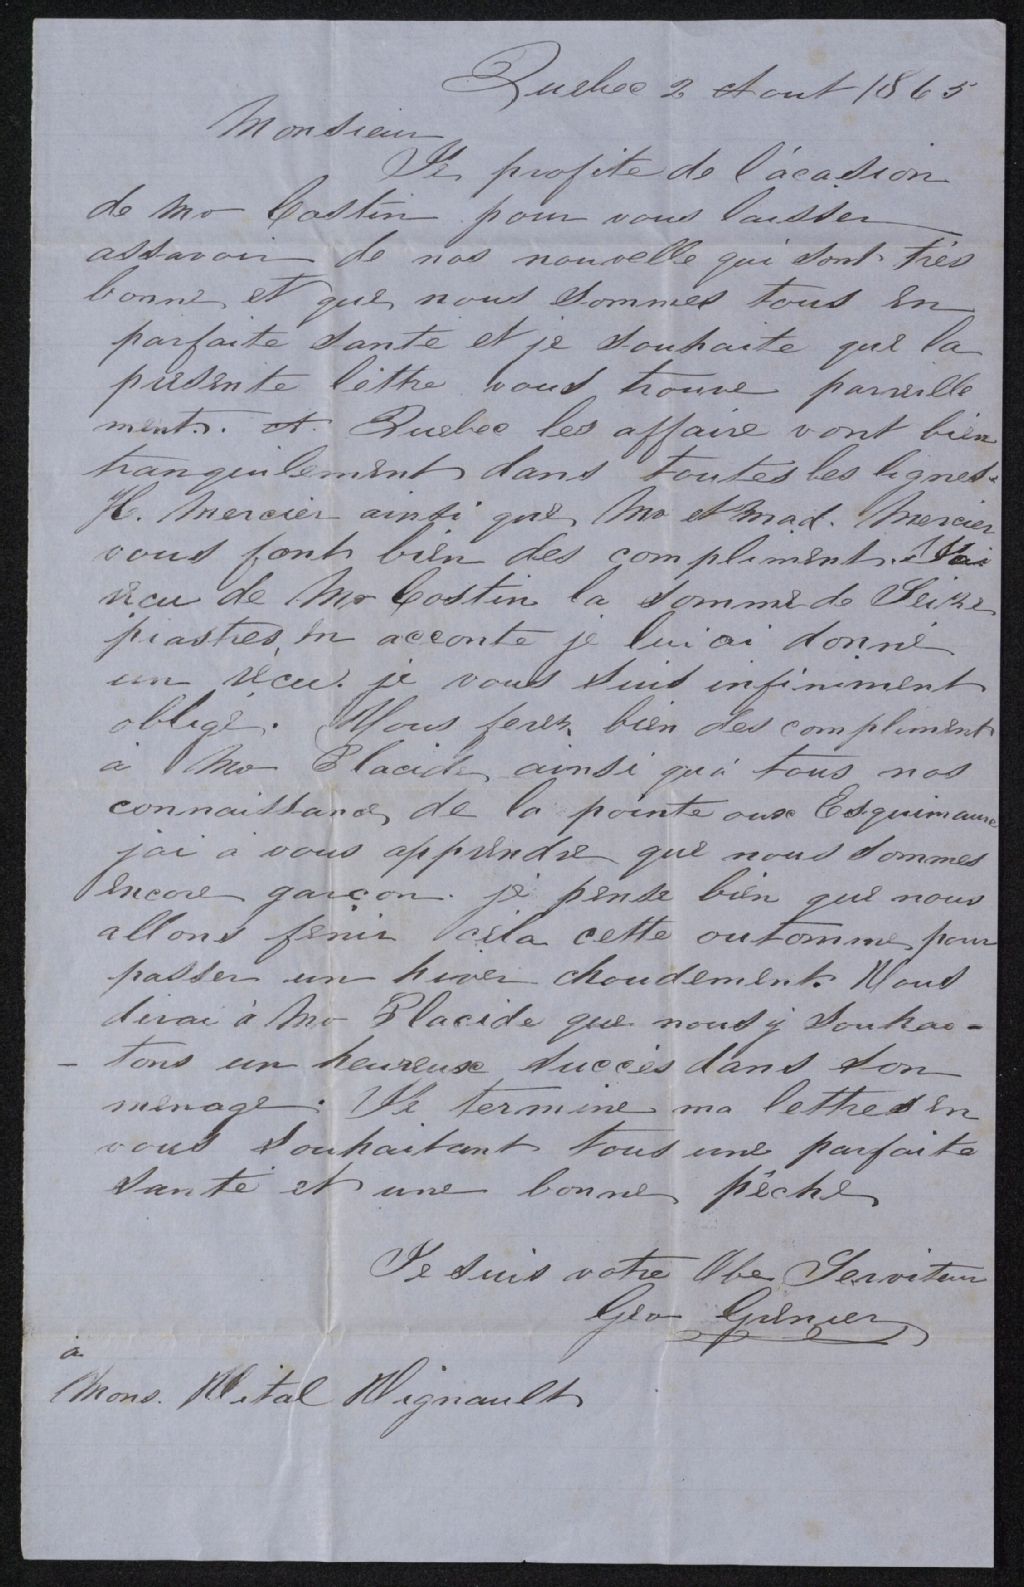 Quebec 2 Aout 1865
Monsieur
Je profite de l'ácasion
de Mr Costin pour vous laisser
assavoir de nos nouvelle qui sont trés
bonne et que nous sommes tous en
parfaite sante et je souhaite que la
présente lèttre vous trouve pareille
ment. A Quebec les affaire vont bien
tranquilement dans toutes les lignes.
H. Mercier ainsi que Mr et Mad. Mercier
vous font bien des compliment. J'ai
recu de Mr Costin la somme de Seize
piastres en acconte je lui ai donné
un recu. je vous suis infiniment
obligé. Vous ferez bien des compliment
à Mr Placide ainsi qu'á tous nos
connaissance de la pointe aux Esquimaux
j'ai a vous apprendre que nous sommes
encore garçon. je pense bien que nous
allons fenir cela cette automne pour
passer un hiver choudement. Vous
dirai à Mr Placide que nous y souhai-
- tons un heureux succès dans son
menage. Je termine ma lettres en
vous souhaitant tous une parfaite
santé et une bonne pêche
Je suis votre Obe Serviteur
Geo Grenier
à
Mons. Vital Vignault